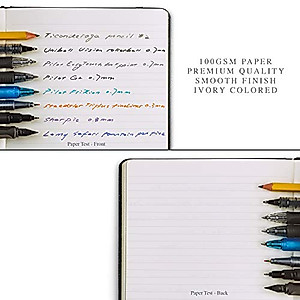 Ticonderoga pencil #2
Uniball Vision rollerball 0.7mm
Pilot Easytouch ballpoint 0.7mm
Pilot G2 0.7mm
Pilot Frixion 0.7mm
Staedtler Triplus fineliner 0.3mm
Sharpie 0.8mm
Lamy Safari fountain pen fine
Paper Test - Front
100GSM PAPER
PREMIUM QUALITY
SMOOTH FINISH
IVORY COLORED
Paper Test - Back